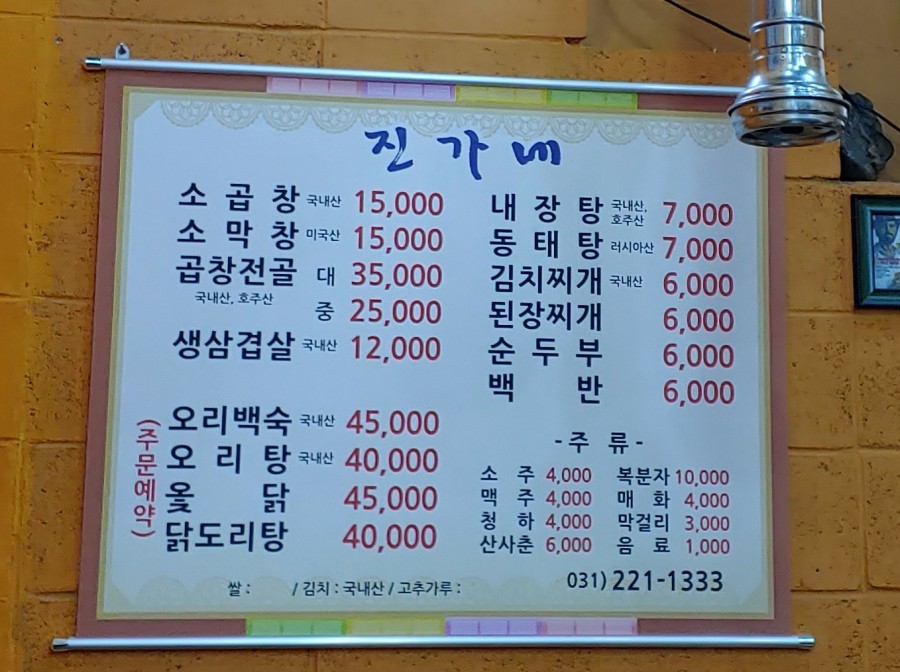 진가네
소곱창 국내산 15,000
소막창 미국산 15,000
곱창전골 대 35,000
국내산, 호주산
중 25,000
생삼겹살 국내산 12,000
(주문예약)
오리백숙 국내산 45,000
오리탕 국내산 40,000
옻닭 45,000
닭도리탕 40,000
내장탕 국내산, 호주산 7,000
동태탕 러시아산 7,000
김치찌개 국내산 6,000
된장찌개 6,000
순두부 6,000
백반 6,000
-주류-
소주 4,000 복분자 10,000
맥주 4,000 매화 4,000
청하 4,000 막걸리 3,000
산사춘 6,000 음료 1,000
쌀 : / 김치 : 국내산 / 고추가루 :
031) 221-1333